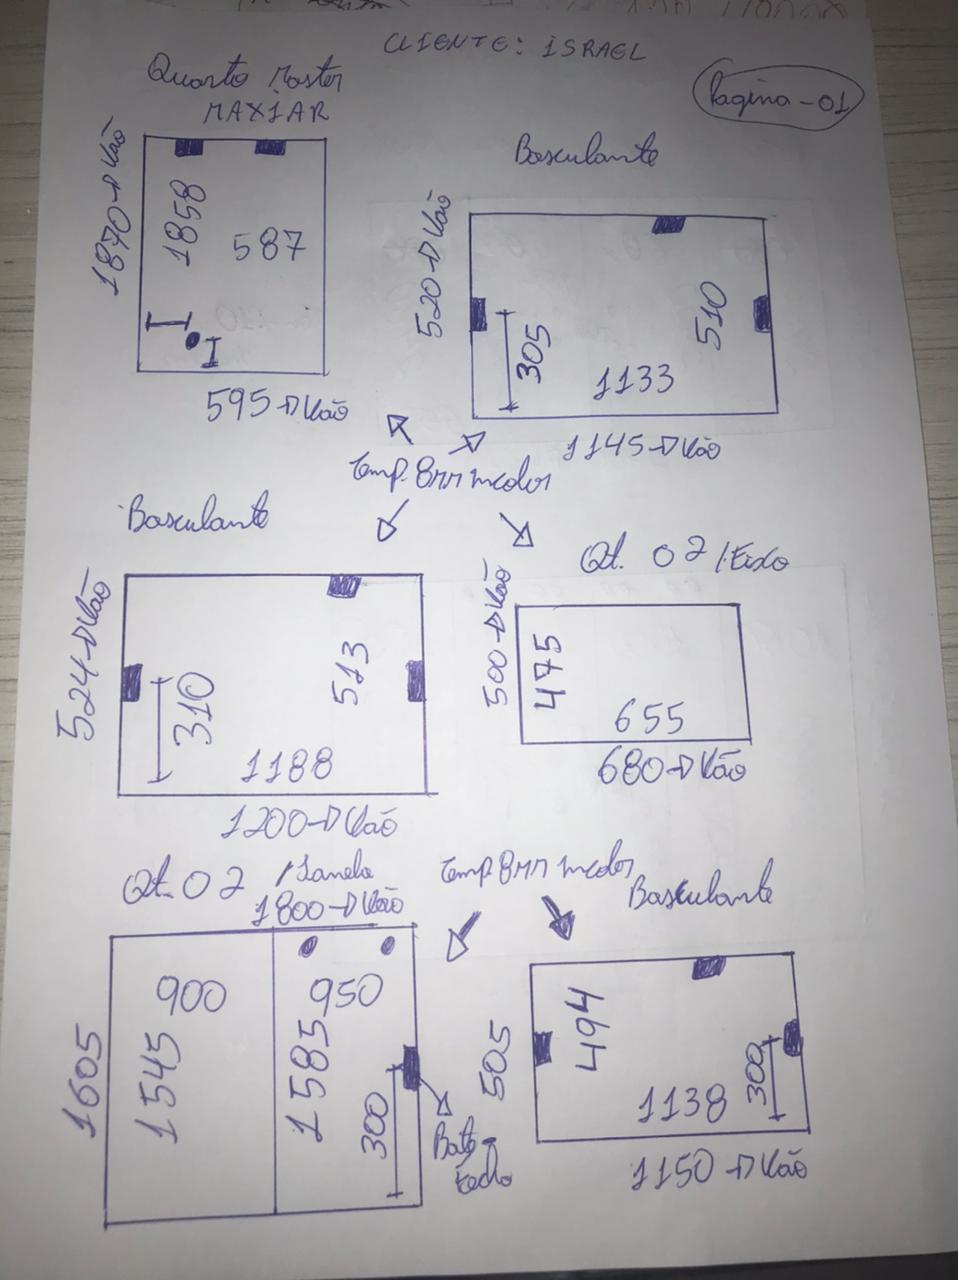 CLIENTE: ISRAEL
Pagina - 01
Quarto Master
MAXIAR
1870 → Vão
1858
587
595 → Vão
Basculante
520 → Vão
305
510
1133
1145 → Vão
Temp. 8mm incolor
Basculante
524 → Vão
310
513
1188
1200 → Vão
Qt. 02 / Fixo
500 → Vão
475
655
680 → Vão
Qt. 02 / Janela
1800 → Vão
1605
900
1545
950
1585
300
Bate-
fecho
Temp 8mm incolor
Basculante
505
494
300
1138
1150 → Vão